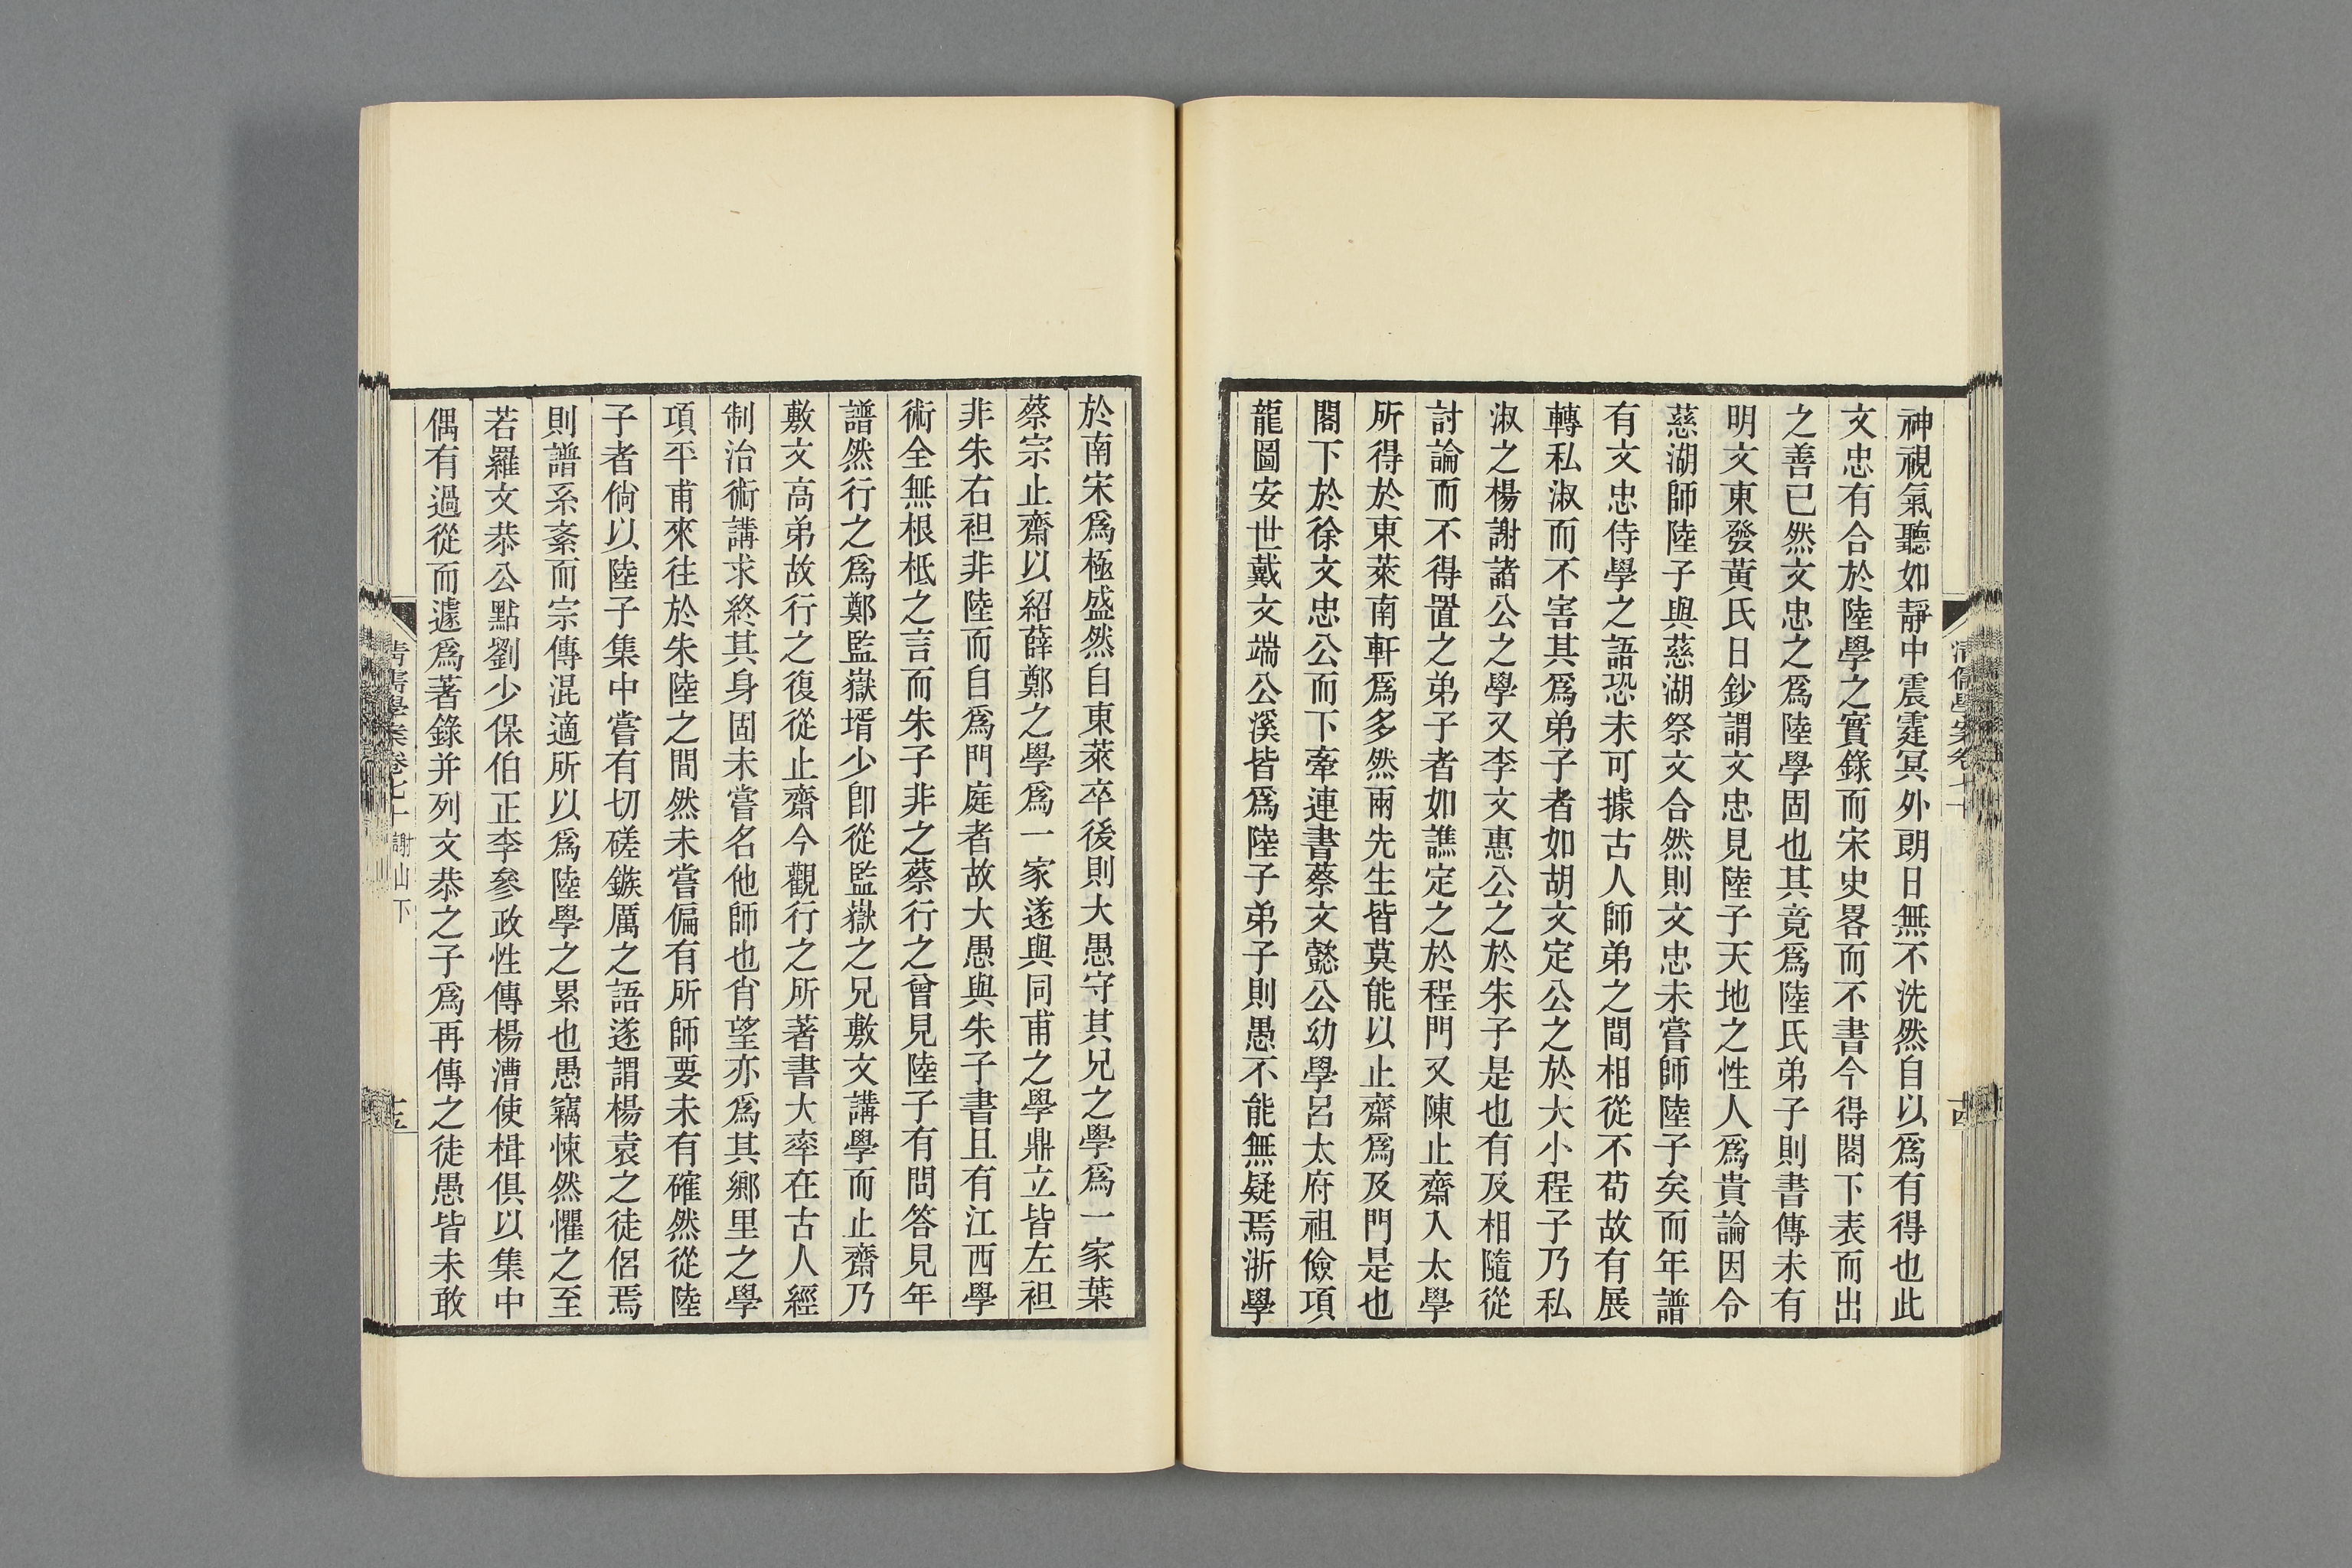 清儒學案卷七十
十四
神視氣聽如靜中震霆冥外朗日無不洗然自以爲有得也此
文忠有合於陸學之實錄而宋史畧而不書今得閣下表而出
之善已然文忠之爲陸學固也其竟爲陸氏弟子則書傳未有
明文東發黃氏日鈔謂文忠見陸子天地之性人爲貴論因令
慈湖師陸子與慈湖祭文合然則文忠未嘗師陸子矣而年譜
有文忠侍學之語恐未可據古人師弟之間相從不苟故有展
轉私淑而不害其爲弟子者如胡文定公之於大小程子乃私
淑之楊謝諸公之學又李文惠公之於朱子是也有及相隨從
討論而不得置之弟子者如譙定之於程門又陳止齋入太學
所得於東萊南軒爲多然兩先生皆莫能以止齋爲及門是也
閣下於徐文忠公而下牽連書蔡文懿公幼學呂太府祖儉項
龍圖安世戴文端公溪皆爲陸子弟子則愚不能無疑焉浙學
於南宋爲極盛然自東萊卒後則大愚守其兄之學爲一家葉
蔡宗止齋以紹薛鄭之學爲一家遂與同甫之學鼎立皆左袒
非朱右袒非陸而自爲門庭者故大愚與朱子書且有江西學
術全無根柢之言而朱子非之蔡行之曾見陸子有問答見年
譜然行之爲鄭監嶽壻少卽從監嶽之兄敷文講學而止齋乃
敷文高弟故行之復從止齋今觀行之所著書大率在古人經
制治術講求終其身固未嘗名他師也肖望亦爲其鄉里之學
項平甫來往於朱陸之間然未嘗偏有所師要未有確然從陸
子者倘以陸子集中嘗有切磋鏃厲之語遂謂楊袁之徒侶焉
則譜系紊而宗傳混適所以爲陸學之累也愚竊悚然懼之至
若羅文恭公點劉少保伯正李參政性傳楊漕使楫俱以集中
偶有過從而遽爲著錄并列文恭之子爲再傳之徒愚皆未敢
清儒學案卷七十 謝山下
十五